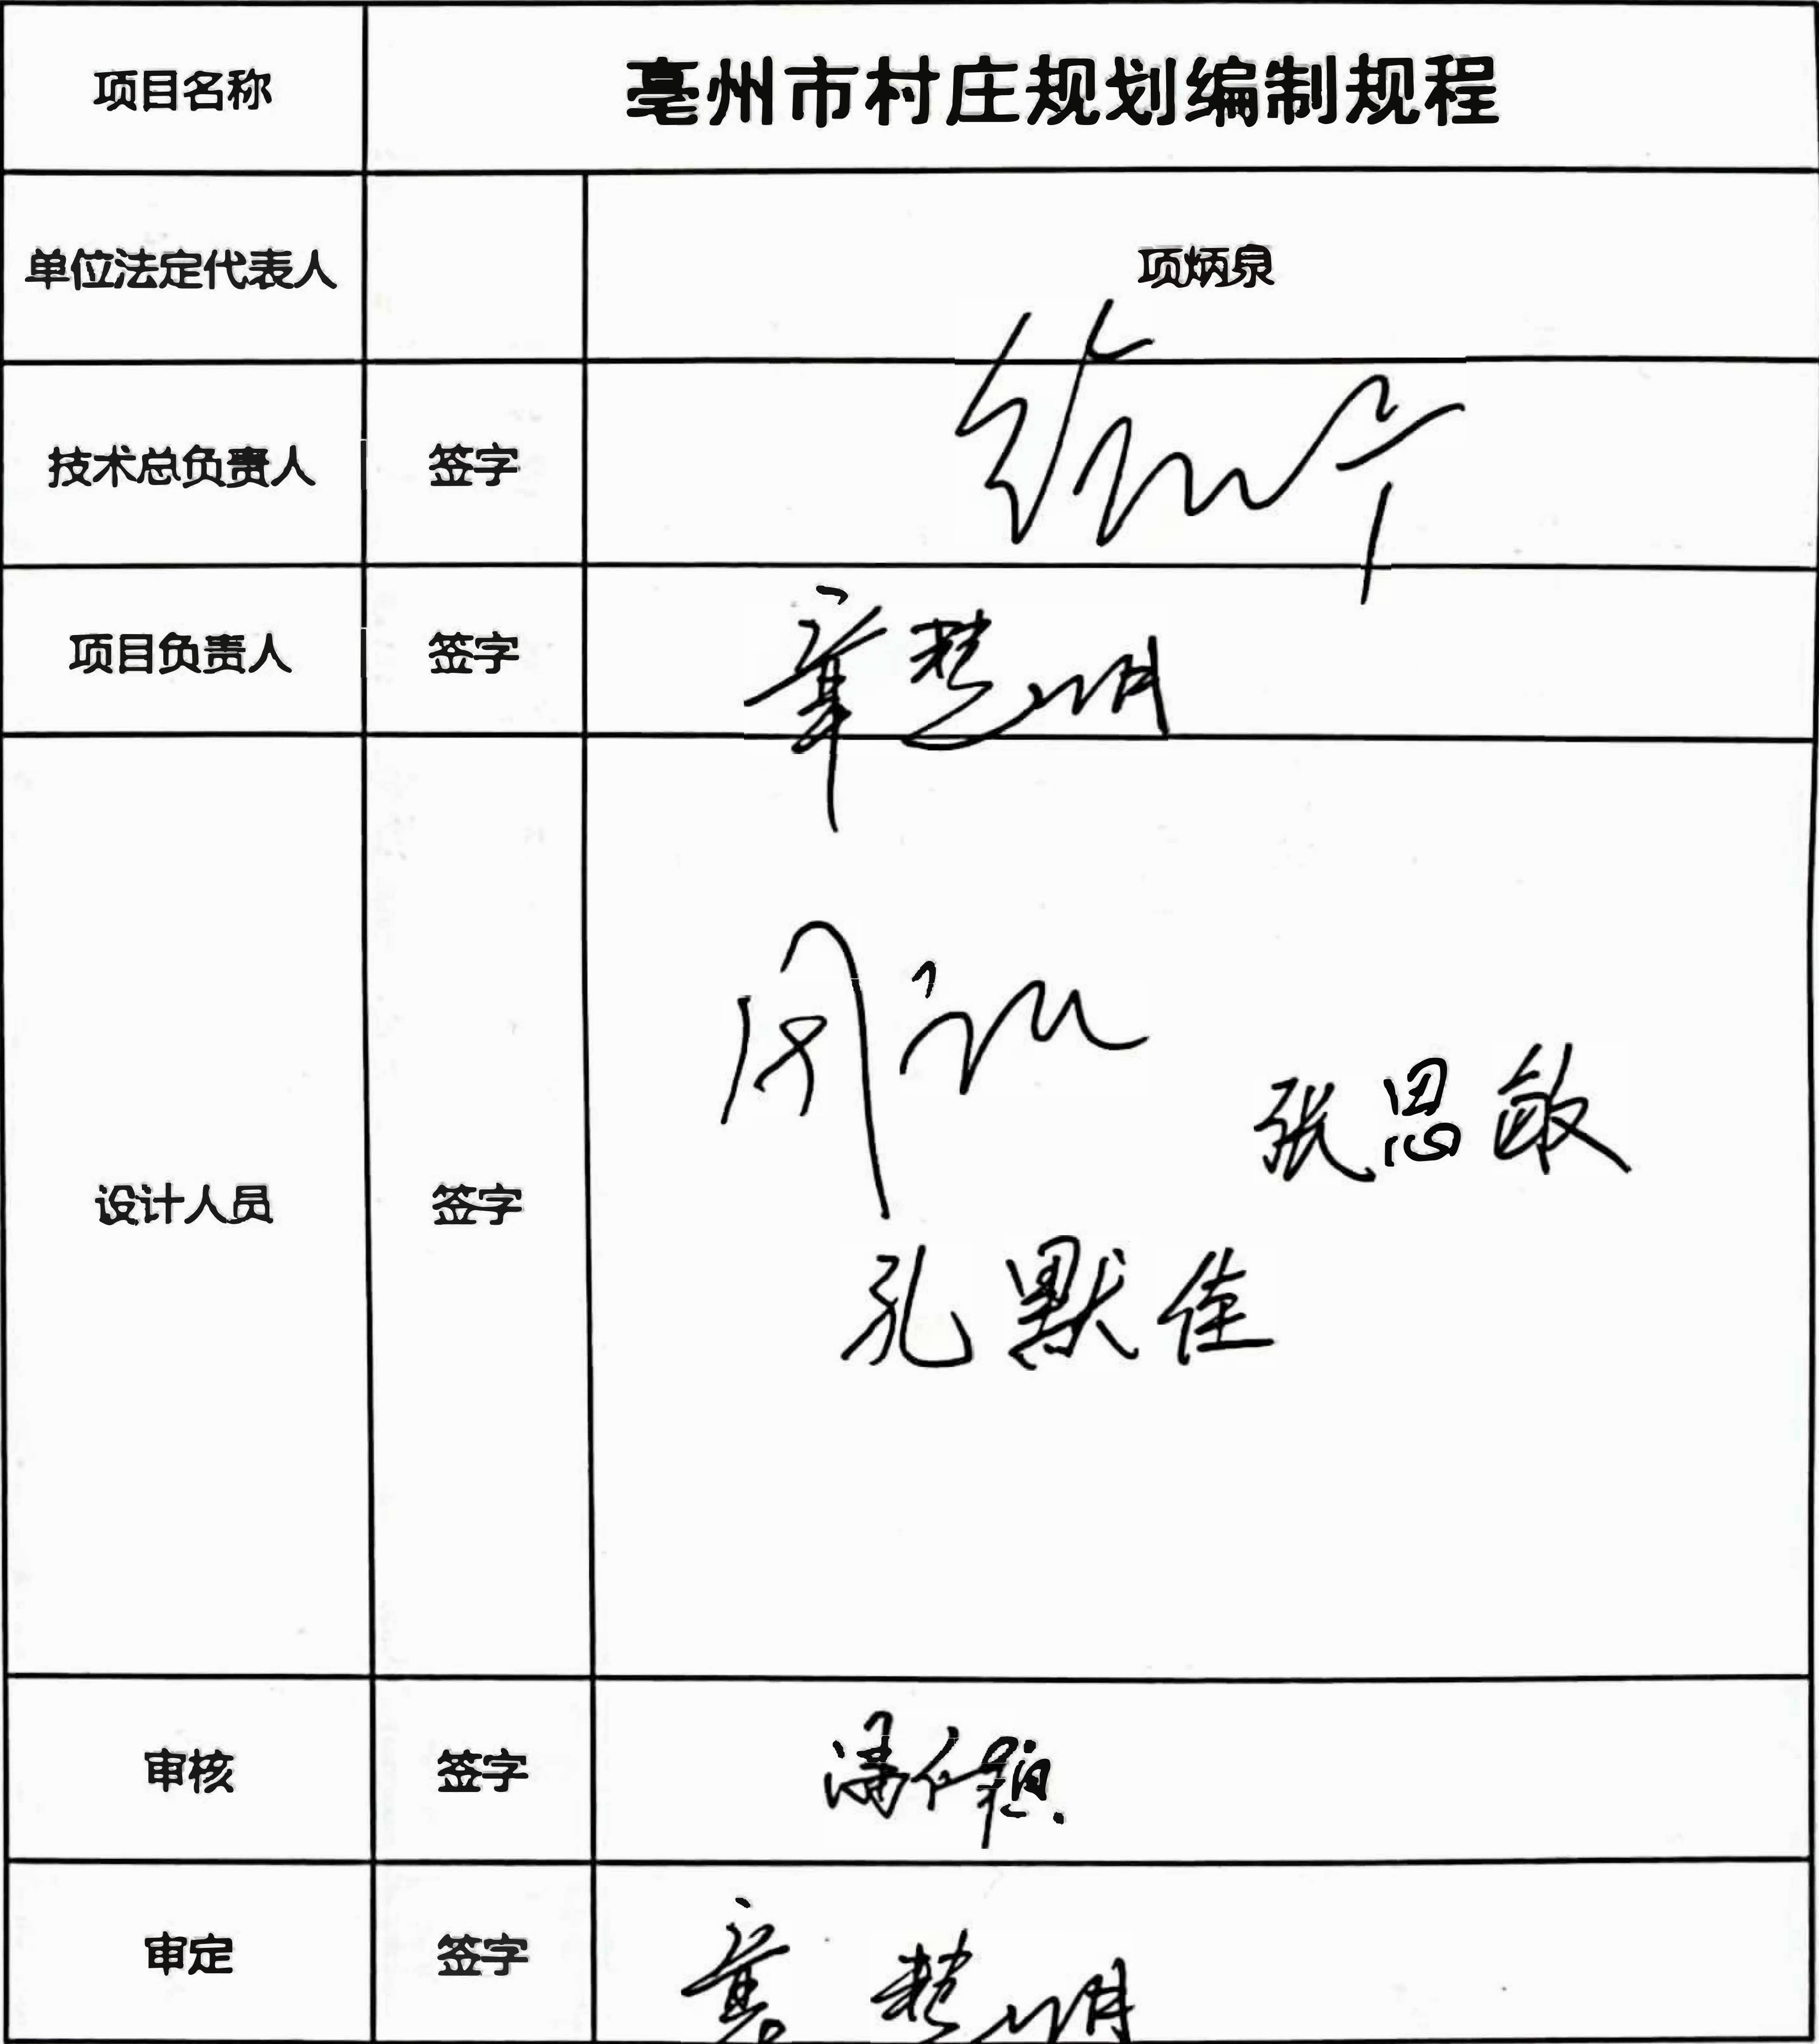 项目名称 亳州市村庄规划编制规程
单位法定代表人 项炳泉
技术总负责人 签字
项目负责人 签字 章楚明
张思敏
设计人员 签字
孔默佳
审核 签字
审定 签字 章楚明